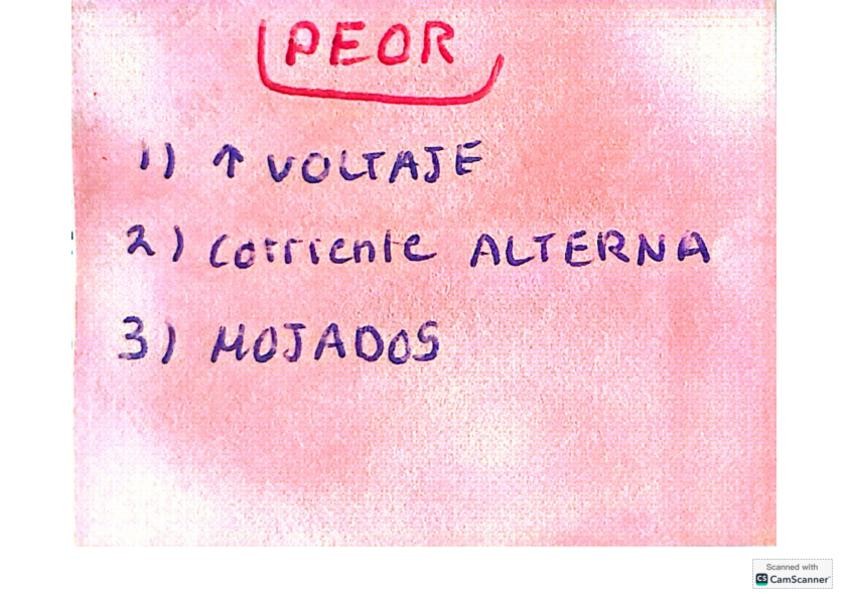 PEOR
1) ↑ VOLTAJE
2) Corriente ALTERNA
3) MOJADOS
Scanned with
CS CamScanner